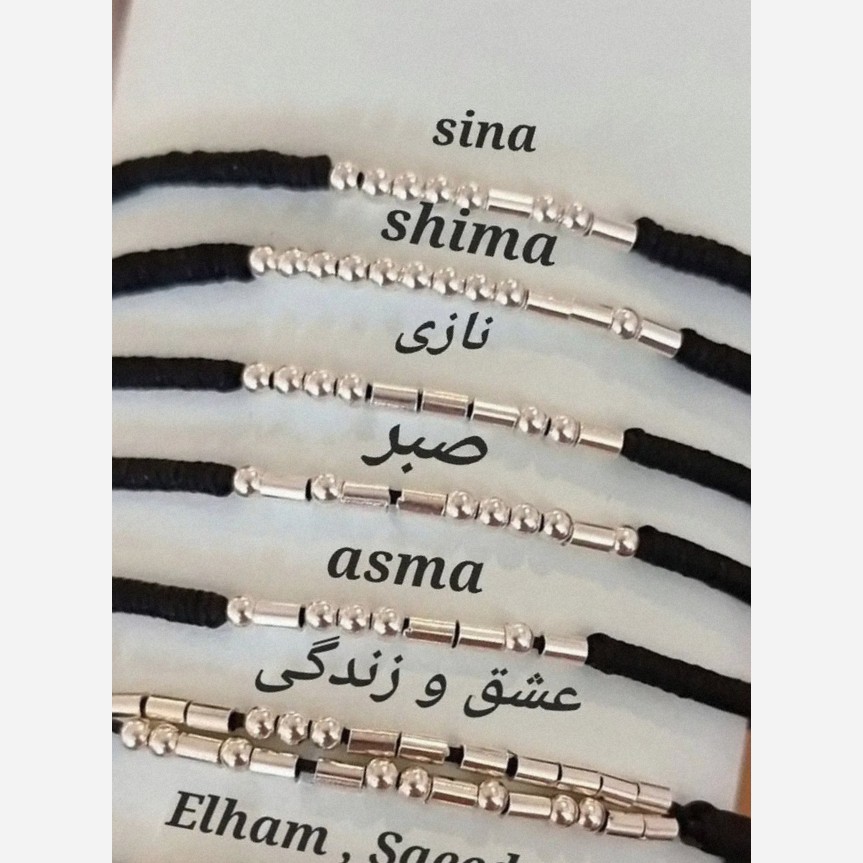 sina
shima
نازی
صبر
asma
عشق و زندگی
Elham , Saeed